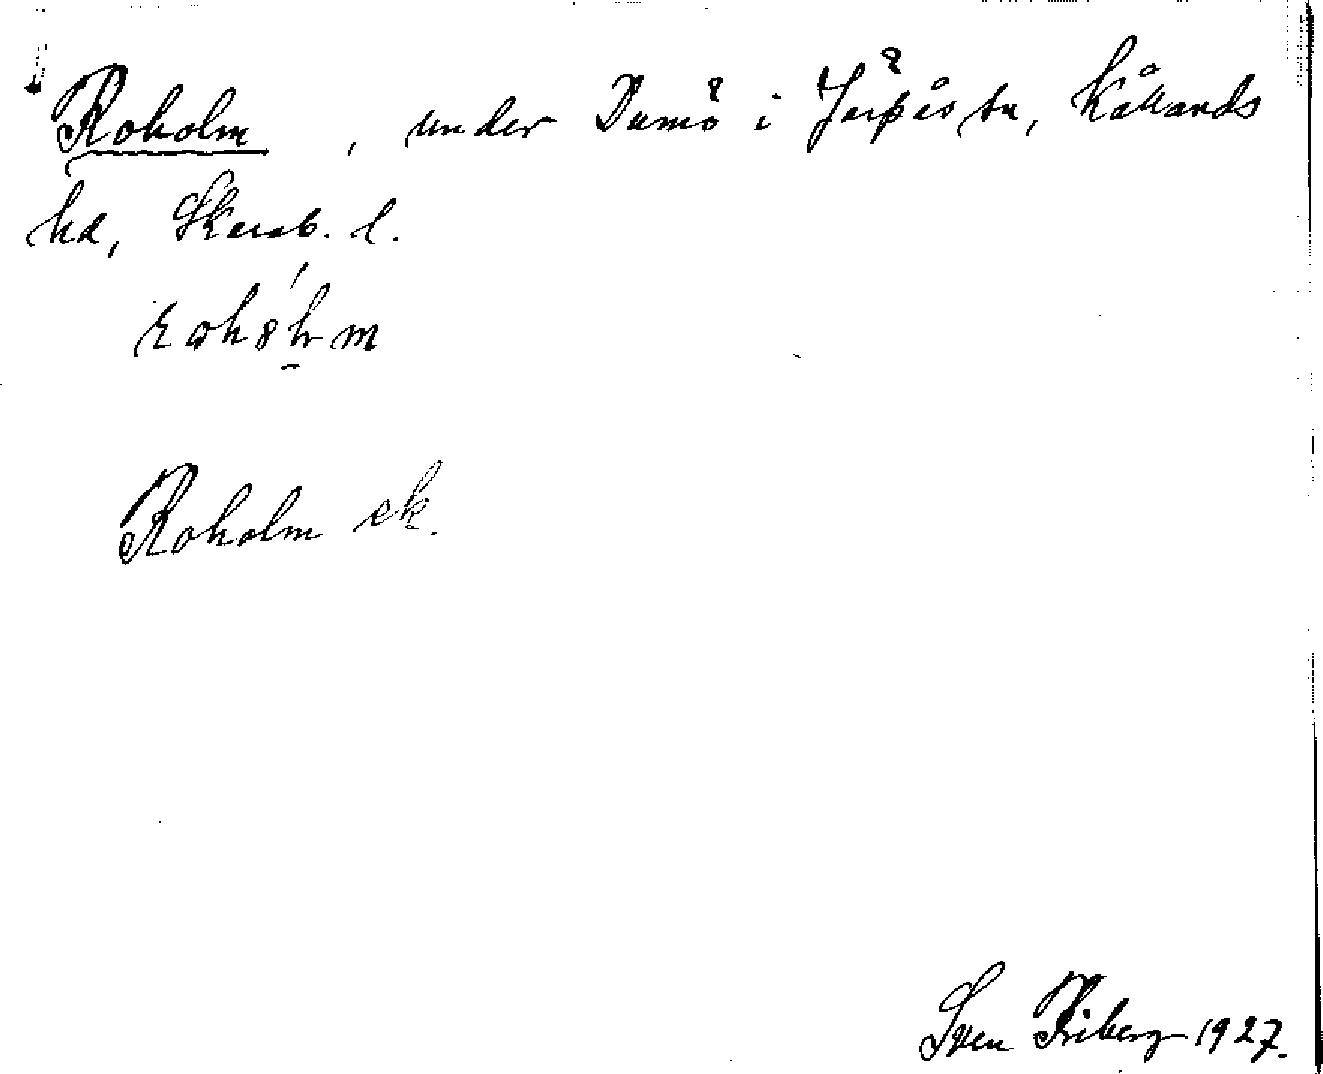 Roholm , under Damö i Järpås sn, Kållands
hd, Skarab. l.
Roholm ek.
Sven Friberg 1927.